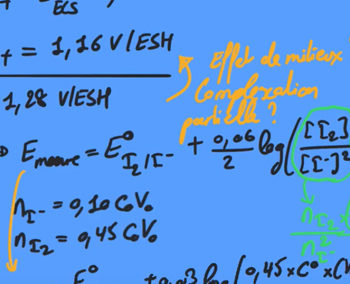 ECS
t = 1,16 V/ESH
1,28 V/ESH
Effet de milieux
Complexation
partielle ?
E mesure = E° I2/I- + 0,06/2 log([I2]/[I-]²
nI- = 0,10 C°V0
nI2 = 0,45 C°V0
nI2 x
n²I-
E° + 0,03 log (0,45×C°×